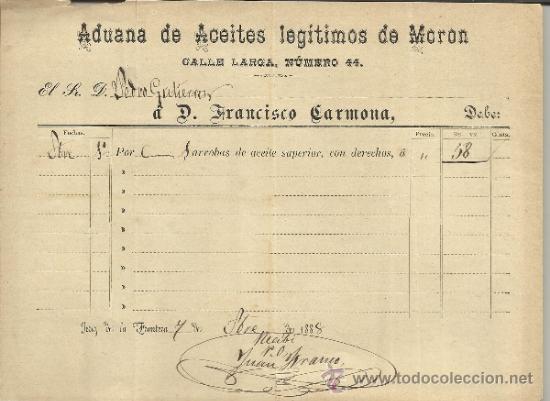 Aduana de Aceites legítimos de Moron
CALLE LARGA, NÚMERO 44.
El S. D. Pedro Gutierrez
á D. Francisco Carmona, Debe:
Fechas. Precio. Rs. vn. Cénts.
1º Por arrobas de aceite superior, con derechos, á " 58
"
"
"
"
"
Jerez de la Frontera 7 de de 1888
Recibí
P.O.
Juan Franco
www.todocoleccion.net